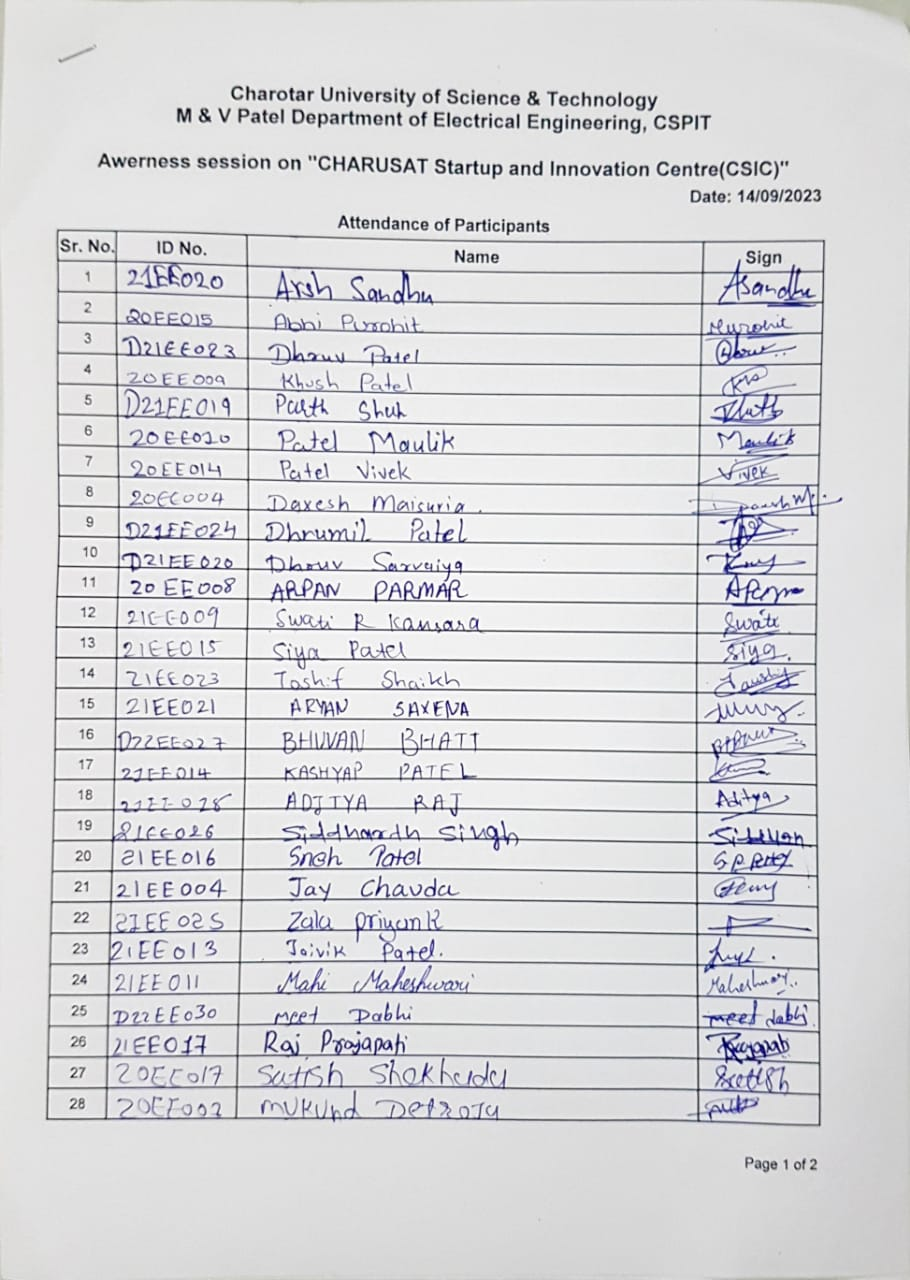 Charotar University of Science & Technology
M & V Patel Department of Electrical Engineering, CSPIT
Awerness session on "CHARUSAT Startup and Innovation Centre(CSIC)"
Date: 14/09/2023
Attendance of Participants
Sr. No. ID No. Name Sign
1 21EE020 Arsh Sandhu Asandhu
2 20EE015 Abhi Purohit Purohit
3 D21EE023 Dhruv Patel
4 20EE009 Khush Patel
5 D21EE019 Parth Shah
6 20EE010 Patel Maulik Maulik
7 20EE014 Patel Vivek Vivek
8 20EE004 Daxesh Maisuria.
9 D21EE024 Dhrumil Patel
10 D21EE020 Dhruv Sarvaiya
11 20EE008 ARPAN PARMAR
12 21EE009 Swati R Kansara Swati
13 21EE015 Siya Patel Siya.
14 21EE023 Toshif Shaikh
15 21EE021 ARYAN SAXENA
16 D22EE027 BHUVAN BHATT
17 21EE014 KASHYAP PATEL
18 21EE028 ADITYA RAJ Aditya
19 21EE026 Siddharth Singh
20 21EE016 Sneh Patel
21 21EE004 Jay Chavda
22 21EE025 Zala Priyank
23 21EE013 Jaivik Patel.
24 21EE011 Mahi Maheshwari
25 D22EE030 Meet Dabhi meet dabhi
26 21EE017 Raj Prajapati Prajapati
27 20EE017 Satish Shekhada Satish
28 20EE002 Mukund Detroja
Page 1 of 2